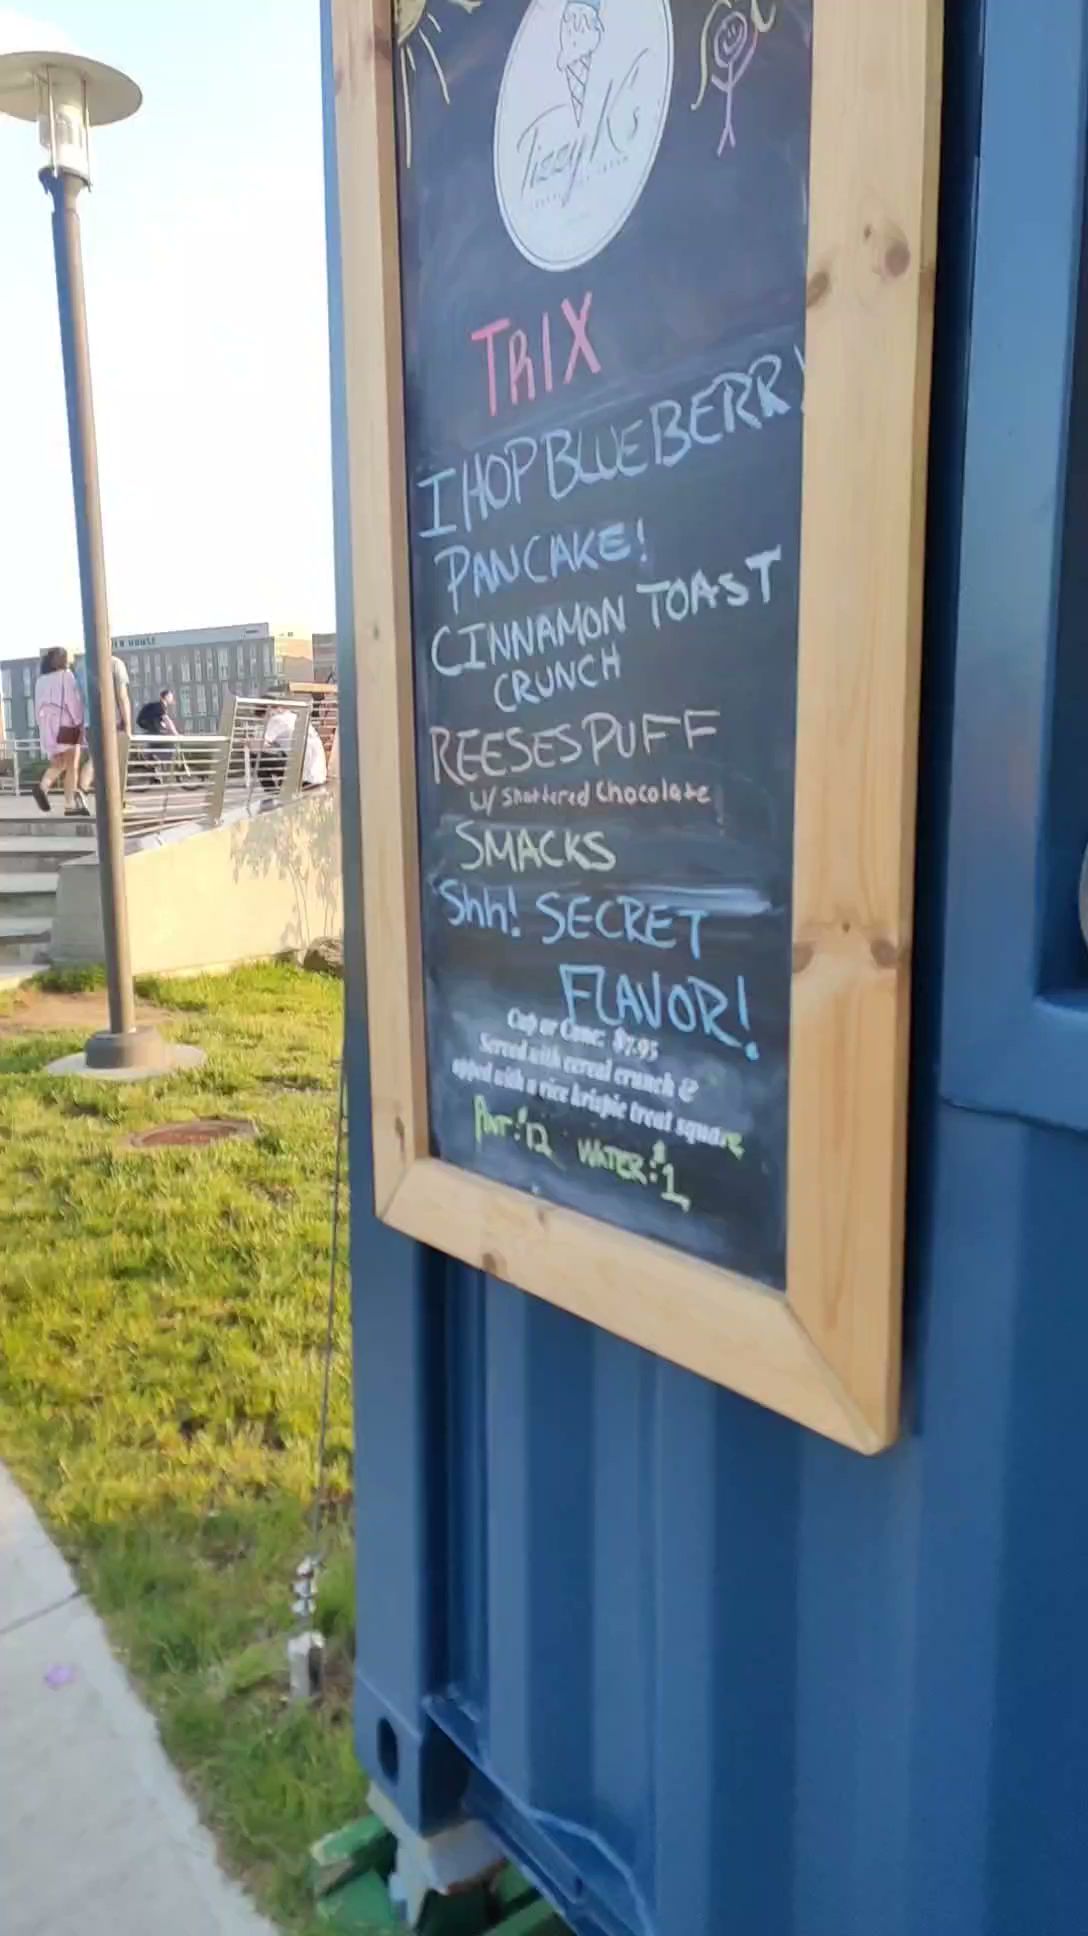 Tizzy K's
TRIX
IHOP BLUEBERRY
PANCAKE!
CINNAMON TOAST
CRUNCH
REESES PUFF
W/ Shattered Chocolate
SMACKS
Shh! SECRET
FLAVOR!
Cup or Cone: $7.95
Served with cereal crunch &
topped with a rice krispie treat square
PINT: $12 WATER: $1
HOUSE